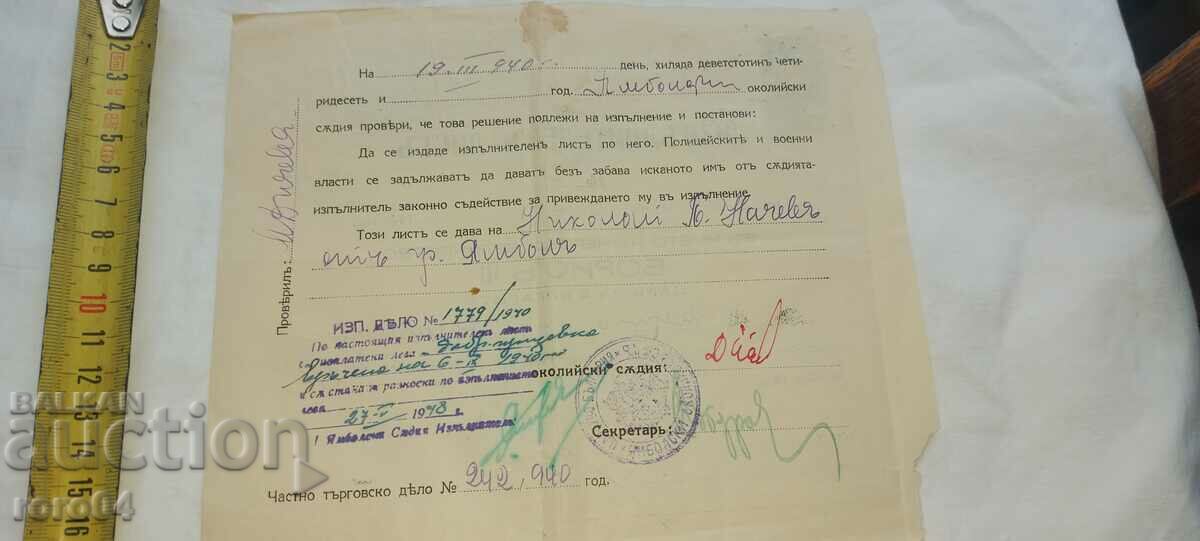 На 19. III. 940 г. день, хиляда деветстотинъ чети-
ридесеть и год. Ямболски околийски
сѫдия провѣри, че това решение подлежи на изпълнение и постанови:
Да се издаде изпълнителенъ листъ по него. Полицейскитѣ и военни
власти се задължаватъ да даватъ безъ забава исканото имъ отъ сѫдията-
изпълнитель законно съдействие за привеждането му въ изпълнение.
Този листъ се дава на Николай П. Начевъ
отъ гр. Ямболъ
Провѣрилъ:
ИЗП. ДѢЛО № 1779/1940
По настоящия изпълнителенъ листъ
изплатени лева
връчена на 6-IX 1940 г.
и сѫ станали разноски по изпълнението
лева
27-V 1948 г.
Ямболски Сѫдия Изпълнитель:
ОКОЛИЙСКИ СѪДИЯ:
Секретарь:
Частно търговско дѣло № 242, 940 год.
BALKAN
auction
roro64
2 3 4 5 6 7 8 9 10 11 12 13 14 15 16